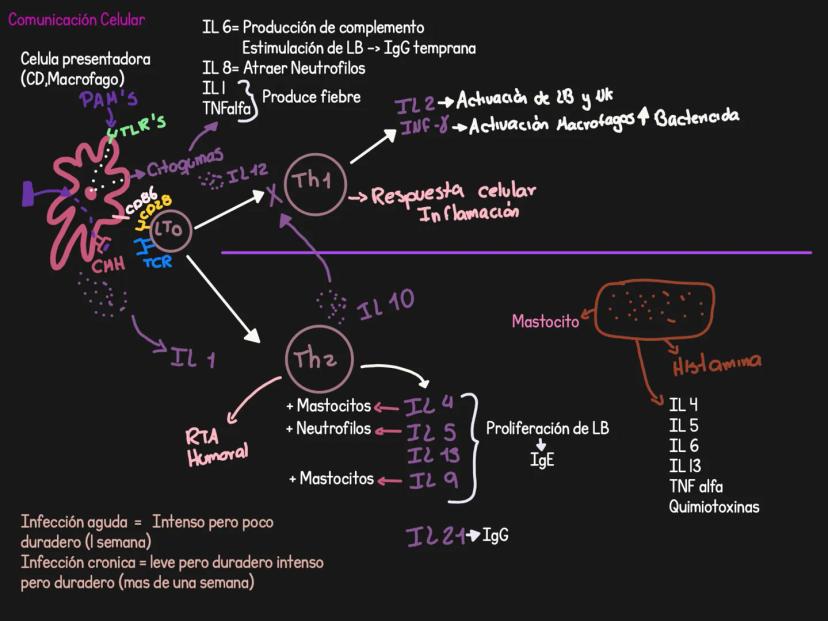 Comunicación Celular
IL 6= Producción de complemento
Estimulación de LB -> IgG temprana
IL 8= Atraer Neutrofilos
IL 1
TNFalfa
Produce fiebre
Celula presentadora
(CD,Macrofago)
PAM'S
TLR'S
Citoquinas
IL12
CD86
CD28
LTO
CMH
TCR
IL 1
Th1
IL2 → Activación de LB y NK
INF-γ → Activación Macrofagos ↑ Bactericida
→ Respuesta celular
Inflamación
X
IL 10
Th2
RTA
Humoral
+ Mastocitos ← IL 4
+ Neutrofilos ← IL 5
IL 13
+ Mastocitos ← IL 9
Proliferación de LB
IgE
IL 21 → IgG
Mastocito
Histamina
IL 4
IL 5
IL 6
IL 13
TNF alfa
Quimiotoxinas
Infección aguda = Intenso pero poco
duradero (1 semana)
Infección cronica = leve pero duradero intenso
pero duradero (mas de una semana)